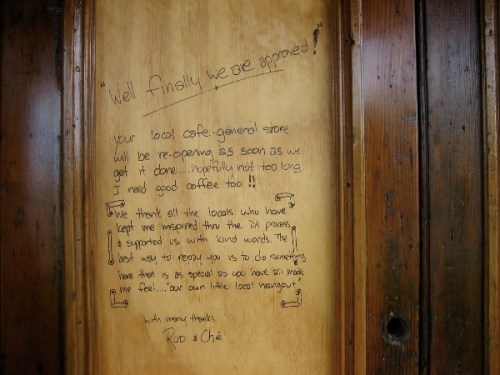 "Well finally we are approved!"
your local cafe-general store
will be re-opening as soon as we
get it done.... hopefully not too long
I need good coffee too !!
We thank all the locals who have
kept me inspired thru the process
& supported us with kind words. The
best way to repay you is to do something
here that is as special as you have all made
me feel.... "our own little local hangout"
with many thanks
Rod &